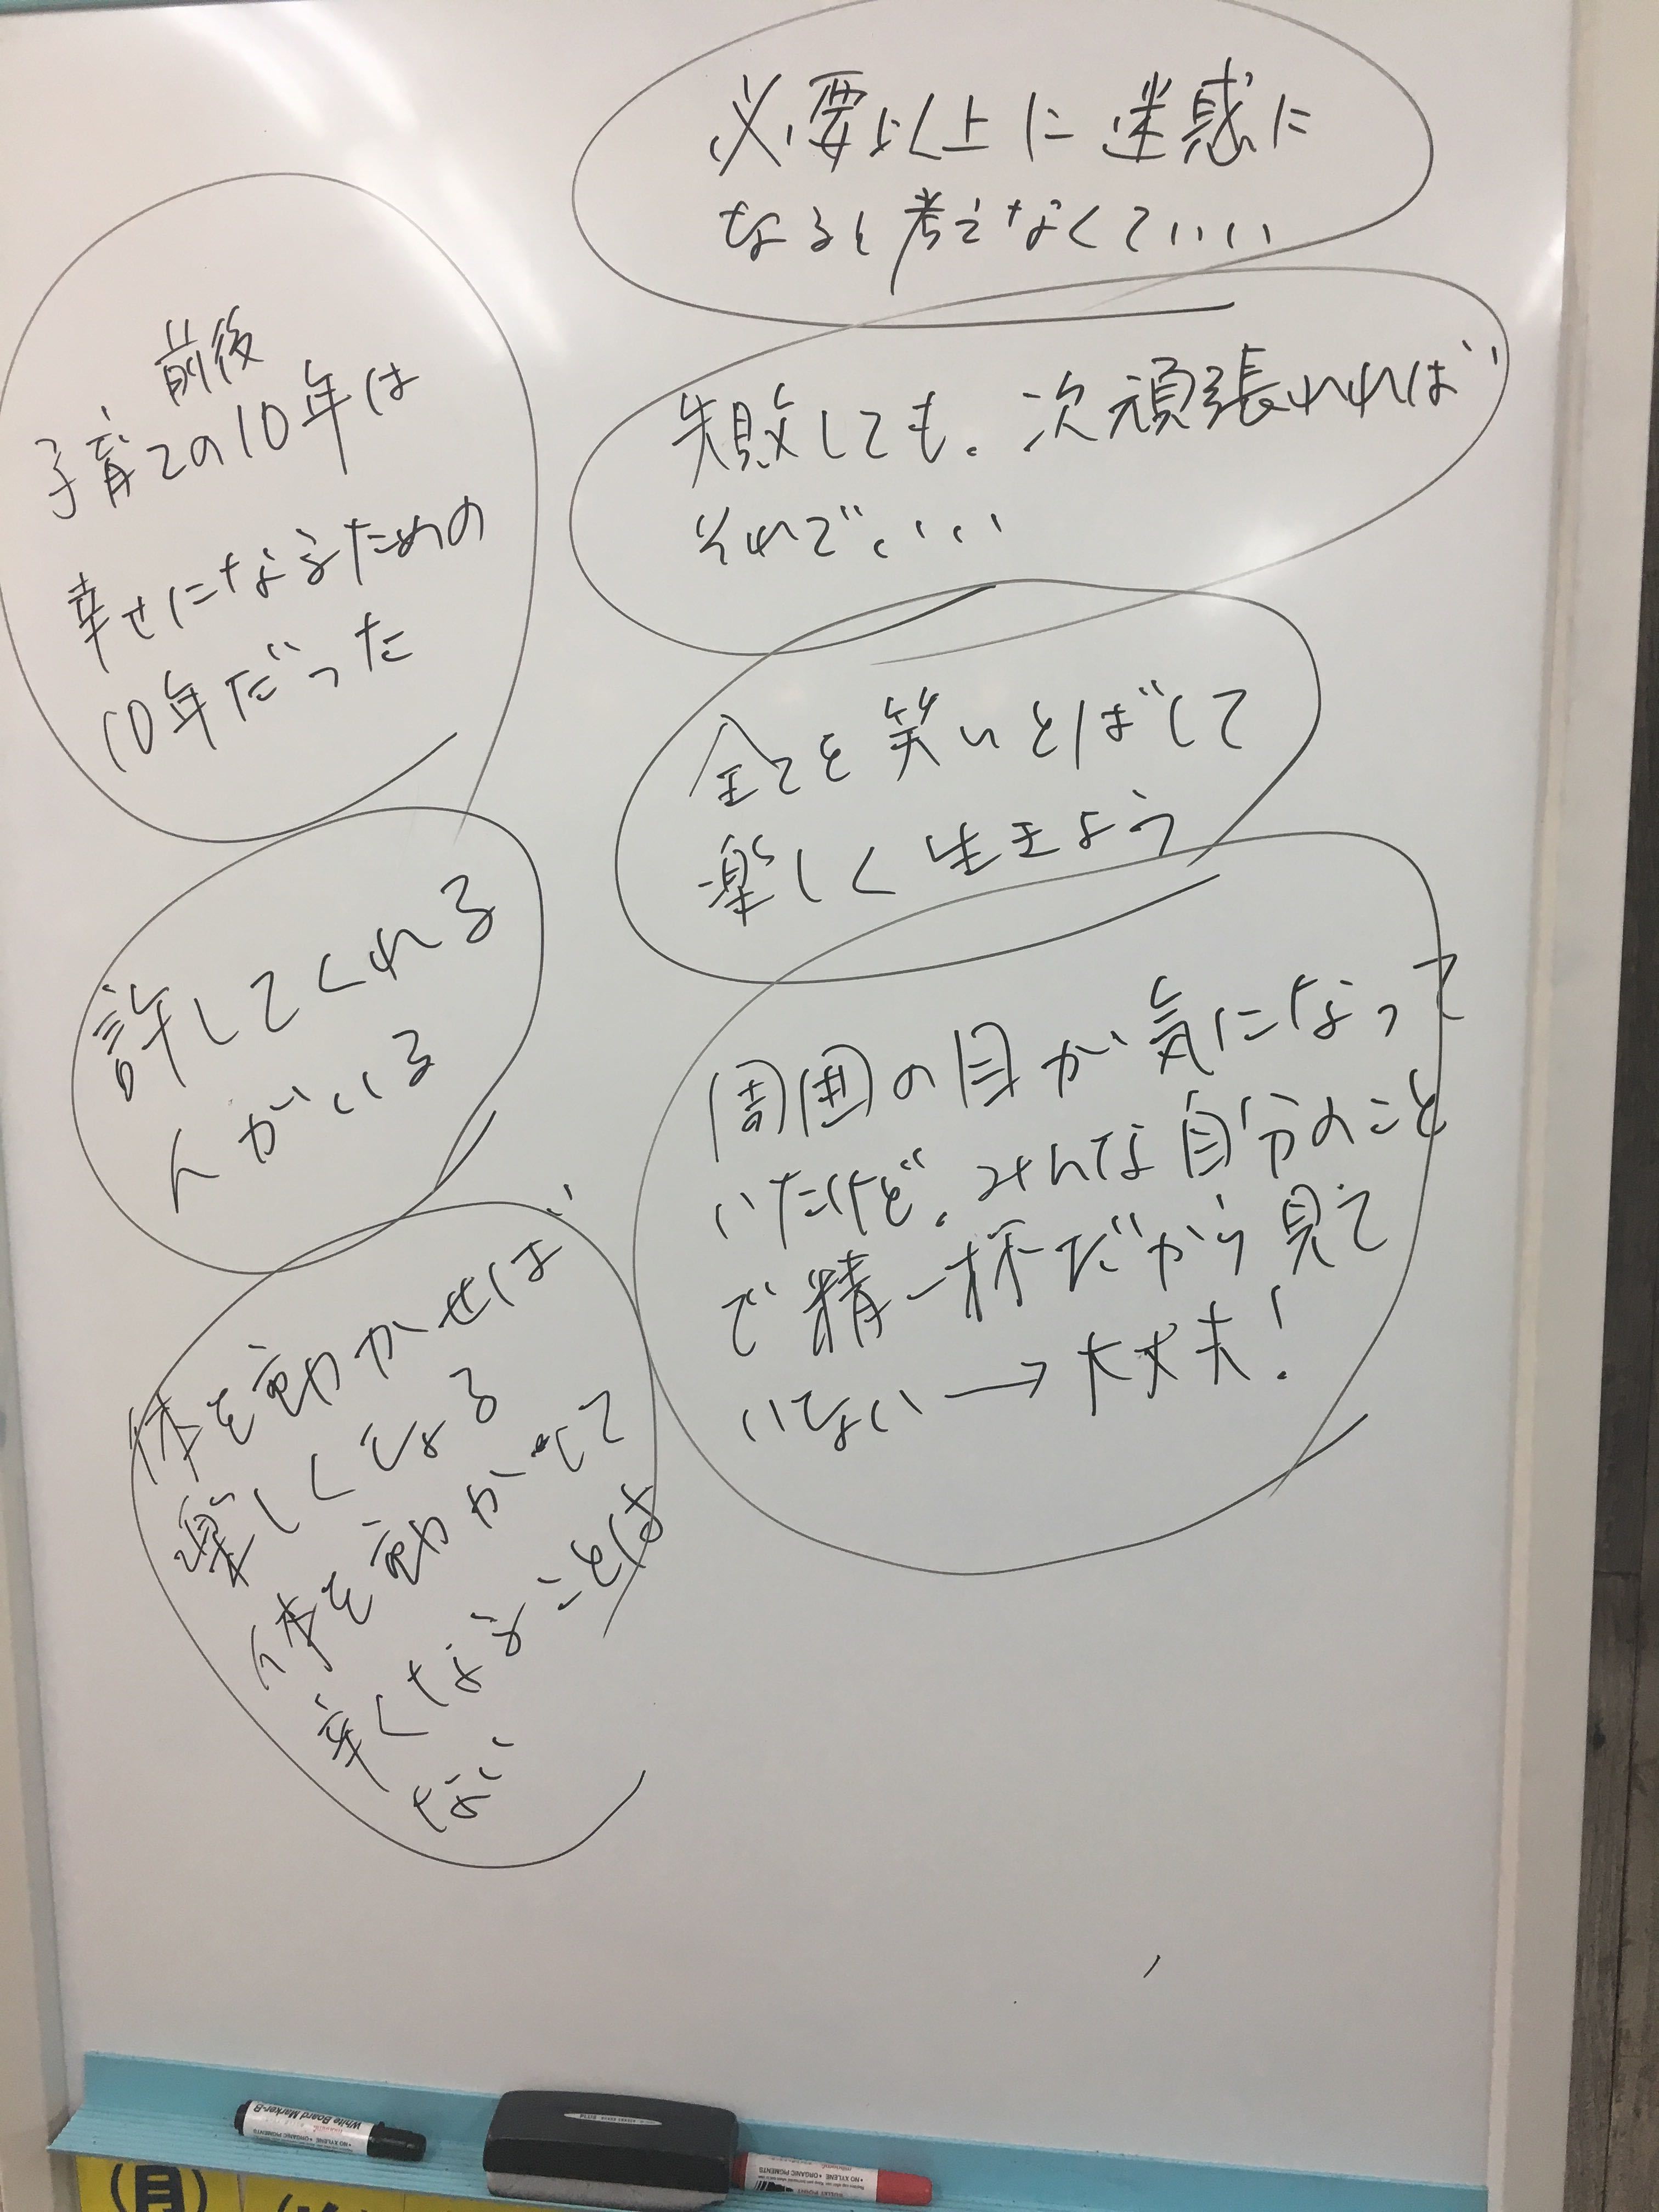 必要以上に迷惑に
なると考えなくていい
失敗しても、次頑張れれば
それでいい
全てを笑いとばして
楽しく生きよう
周囲の目が気になって
いたけど、みんな自分のこと
で精一杯だから見て
いない→大丈夫!
前後
子育ての10年は
幸せになるための
10年だった
許してくれる
人がいる
体を動かせば
楽しくなる
体を動かして
辛くなることは
ない
White Board Marker-B
• NO XYLENE • ORGANIC PIGMENTS
• NO XYLENE • ORGANIC PIGMENTS
(月)